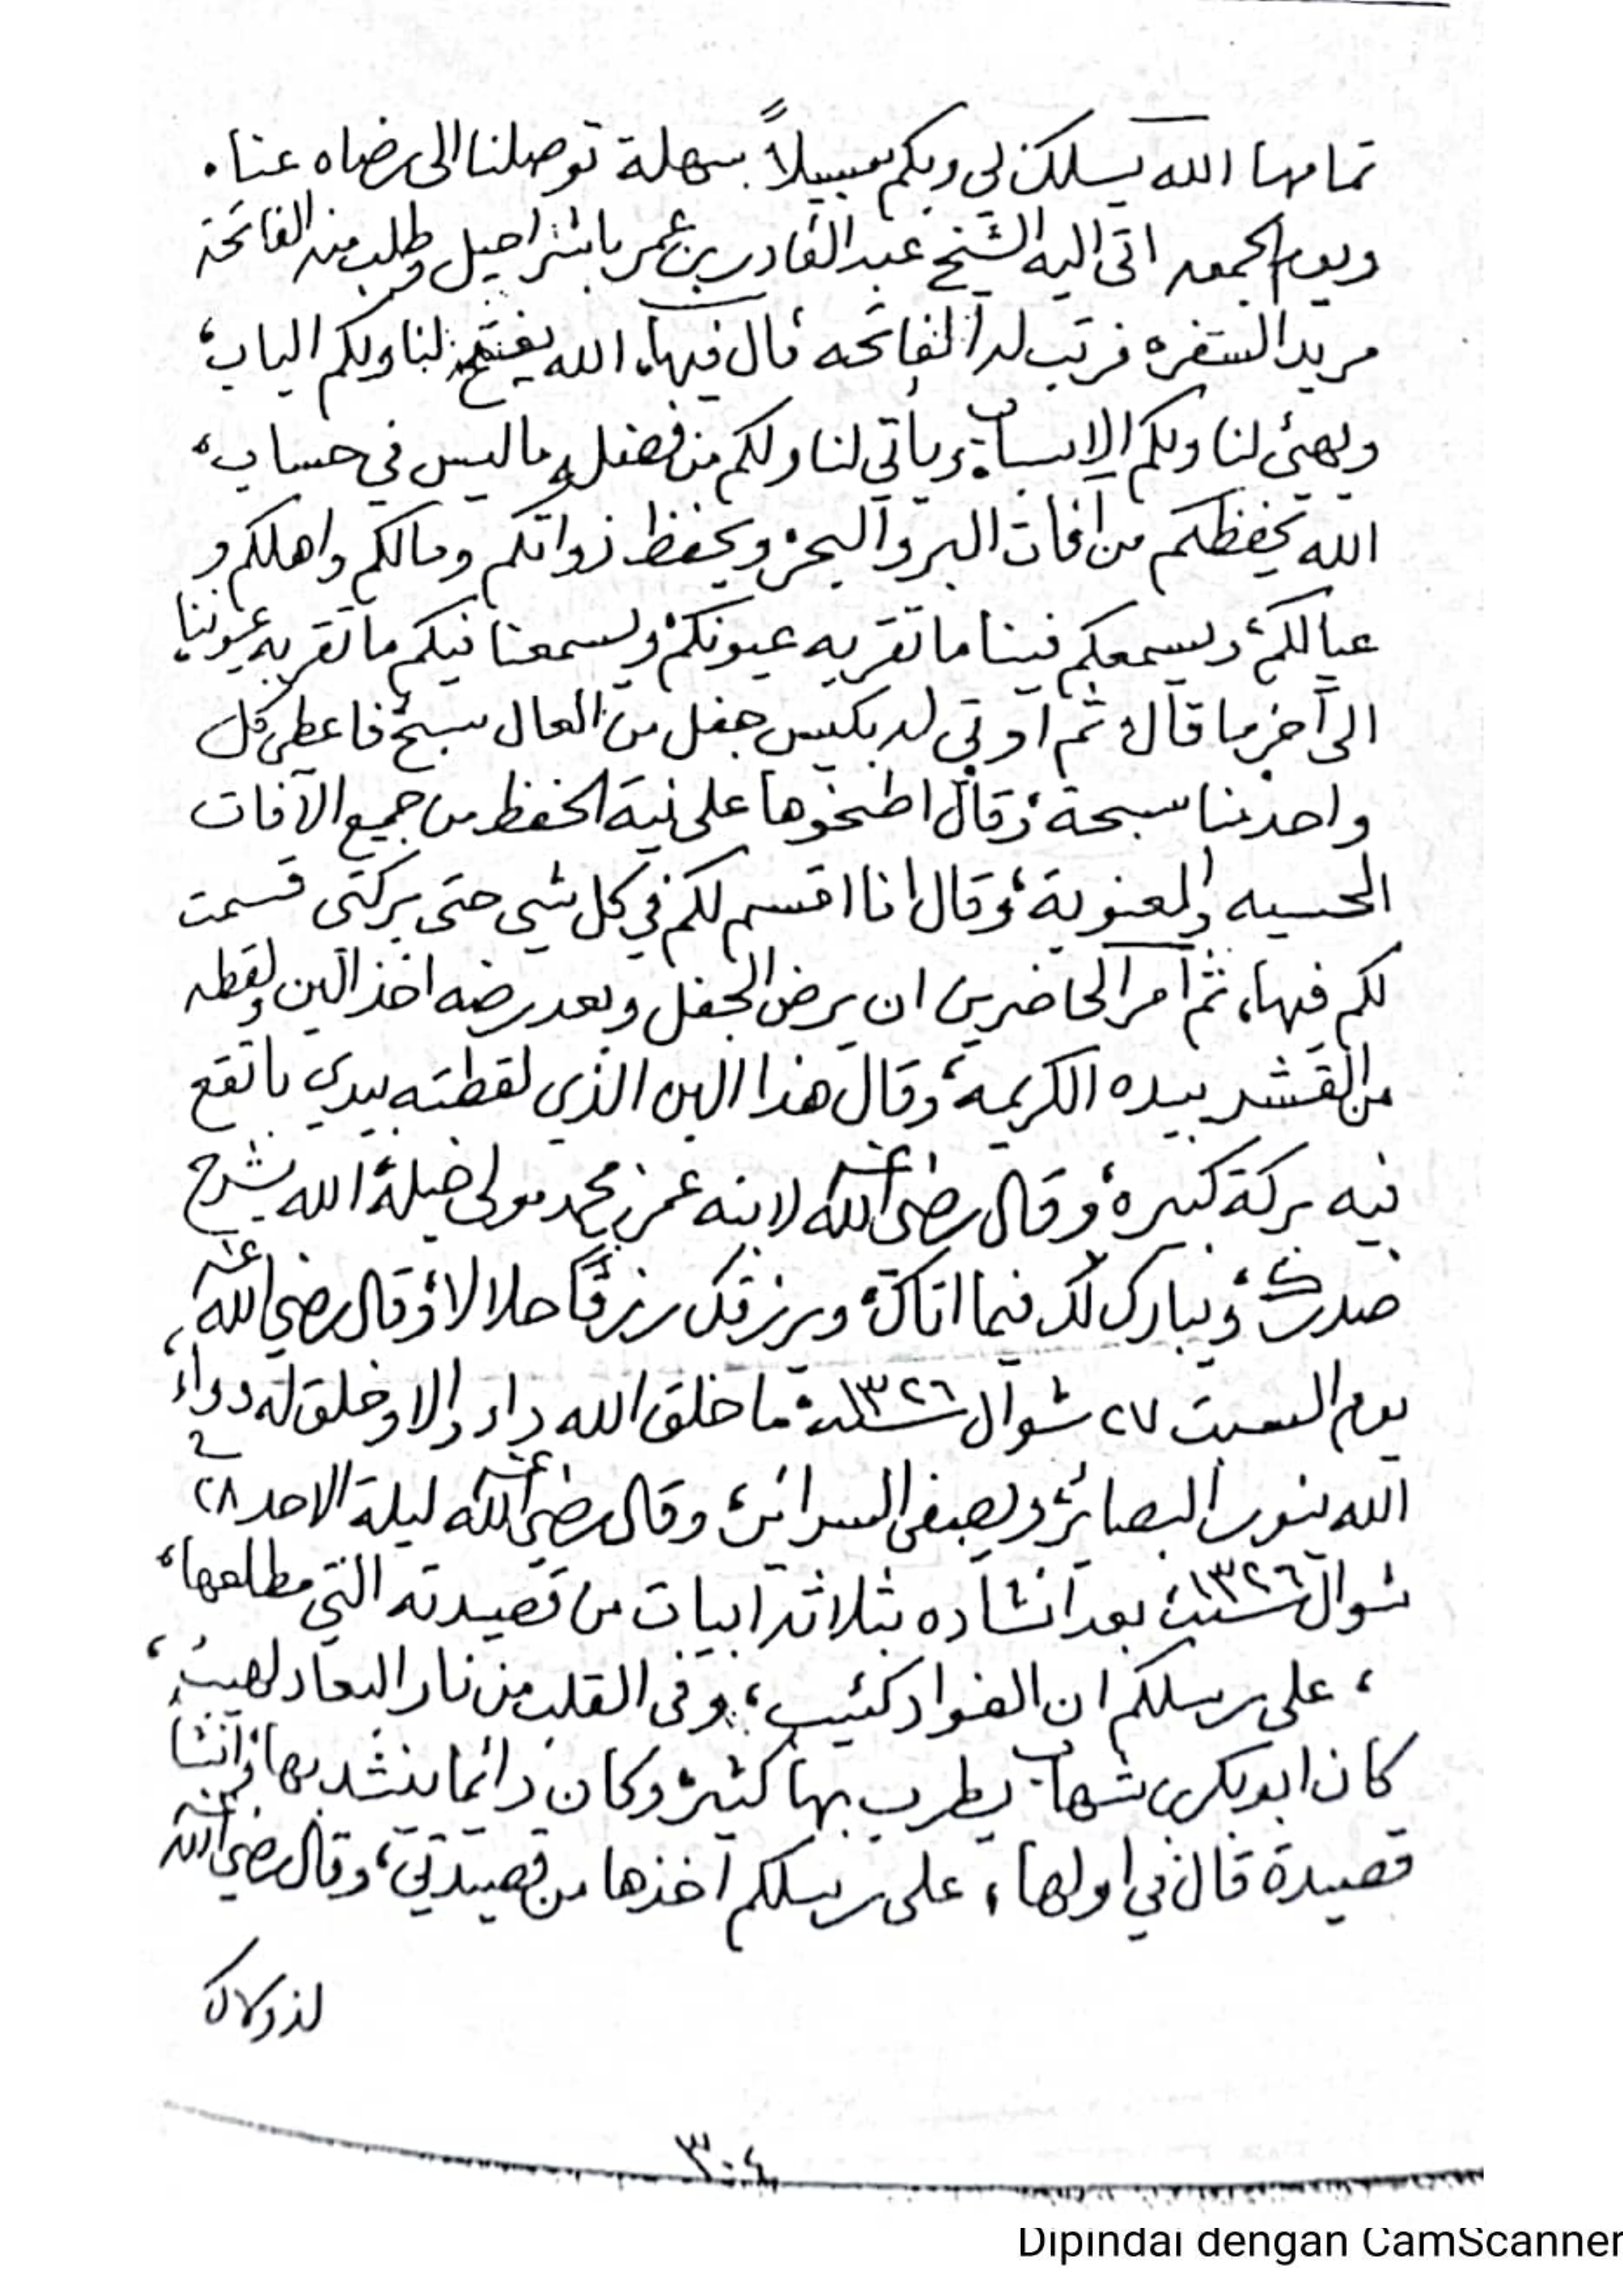 تمامها الله يسلك لي وبكم سبيلاً سهلة توصلنا الى رضاه عنا.
ويوم الجمعه اتى اليه الشيخ عبد القادر بن عمر باشراحيل وطلب منه الفاتحة
مريد السفره فرتب له الفاتحه قال فيها، الله يفتح لنا ولكم الباب،
ويهيئ لنا ولكم الاسباب، وياتي لنا ولكم من فضله ماليس في حساب،
الله يحفظكم من افات البر والبحر، ويحفظ ذواتكم ومالكم واهلكم و
عيالكم، ويسمعكم فينا ما تقر به عيونكم، ويسمعنا فيكم ما تقر به عيوننا،
الى آخر ما قال، ثم اوتي له بكيس جفل من العال فاعطى كل
واحد منا سبحة، وقال اطبخوها على نية الحفظ من جميع الآفات
الحسيه والمعنوية، وقال انا اقسم لكم في كل شي حتى بركتي قسمت
لكم فيها، ثم امر الحاضرين ان يرض الجفل وبعد رضه اخذ البن ولقطه
من القشر بيده الكريمة، وقال هذا البن الذي لقطته بيدي باتقع
فيه بركة كبيرة، وقال رضي الله عنه لابنه عمر بن محمد مولى خيلة، الله يشرح
صدرك، ويبارك لك فيما اتاك، ويرزقك رزقاً حلالا، وقال رضي الله عنه،
يوم السبت ٢٧ شوال سنة ١٣٢٦ ما خلق الله داء والا وخلق له دواء،
الله ينور البصائر، ويصفي السرائر، وقال رضي الله عنه ليلة الاحد ٢٨ في
شوال سنة ١٣٢٦ بعد انشاده بثلاثه ابيات من قصيدته التي مطلعها،
، على رسلكم ان الفواد كئيب، وفي القلب من نار البعاد لهيب،
كان ابوبكر بن شهاب يطرب بها كثير، وكان دائما ينشد بها، وانشأ
قصيدة قال في اولها، على رسلكم اخذها من قصيدتي، وقال رضي الله عنه
٣٠٤
Dipindai dengan CamScanner